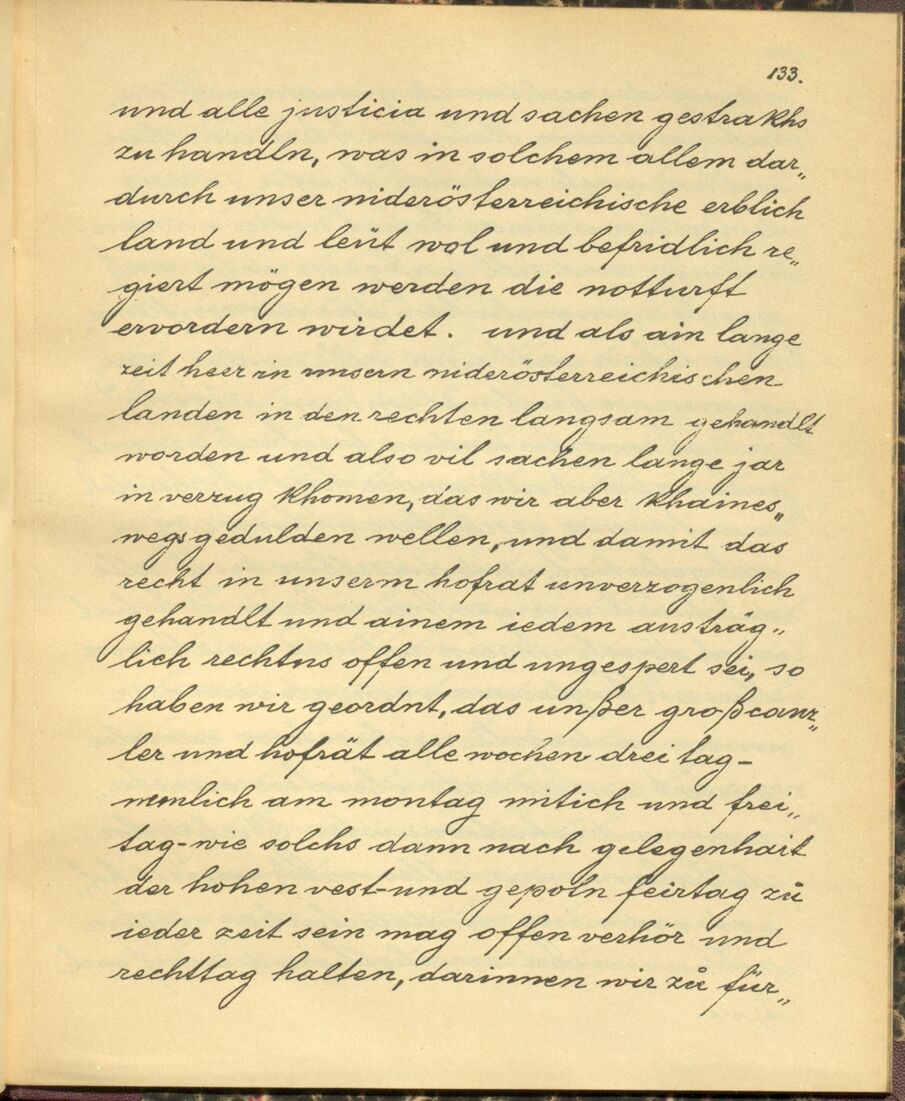 133.
und alle justicia und sachen gestrakhs
zu handln, was in solchem allem dar„
durch unser niderösterreichische erblich
land und leüt wol und befridlich re„
giert mögen werden die notturft
ervordern wirdet. und als ain lange
zeit heer in unsern niderösterreichischen
landen in den rechten langsam gehandlt
worden und also vil sachen lange jar
in verzug khomen, das wir aber khaines„
wegs gedulden wellen, und damit das
recht in unserm hofrat unverzogenlich
gehandlt und ainem iedem austräg„
lich rechtns offen und ungespert sei, so
haben wir geordnt, das unßer großcanz„
ler und hofrät alle wochen drei tag-
nemlich am montag mitich und frei„
tag-wie solchs dann nach gelegenhait
der hohen vest-und gepotn feirtag zů
ieder zeit sein mag offen verhör und
rechttag halten, darinnen wir zů für„